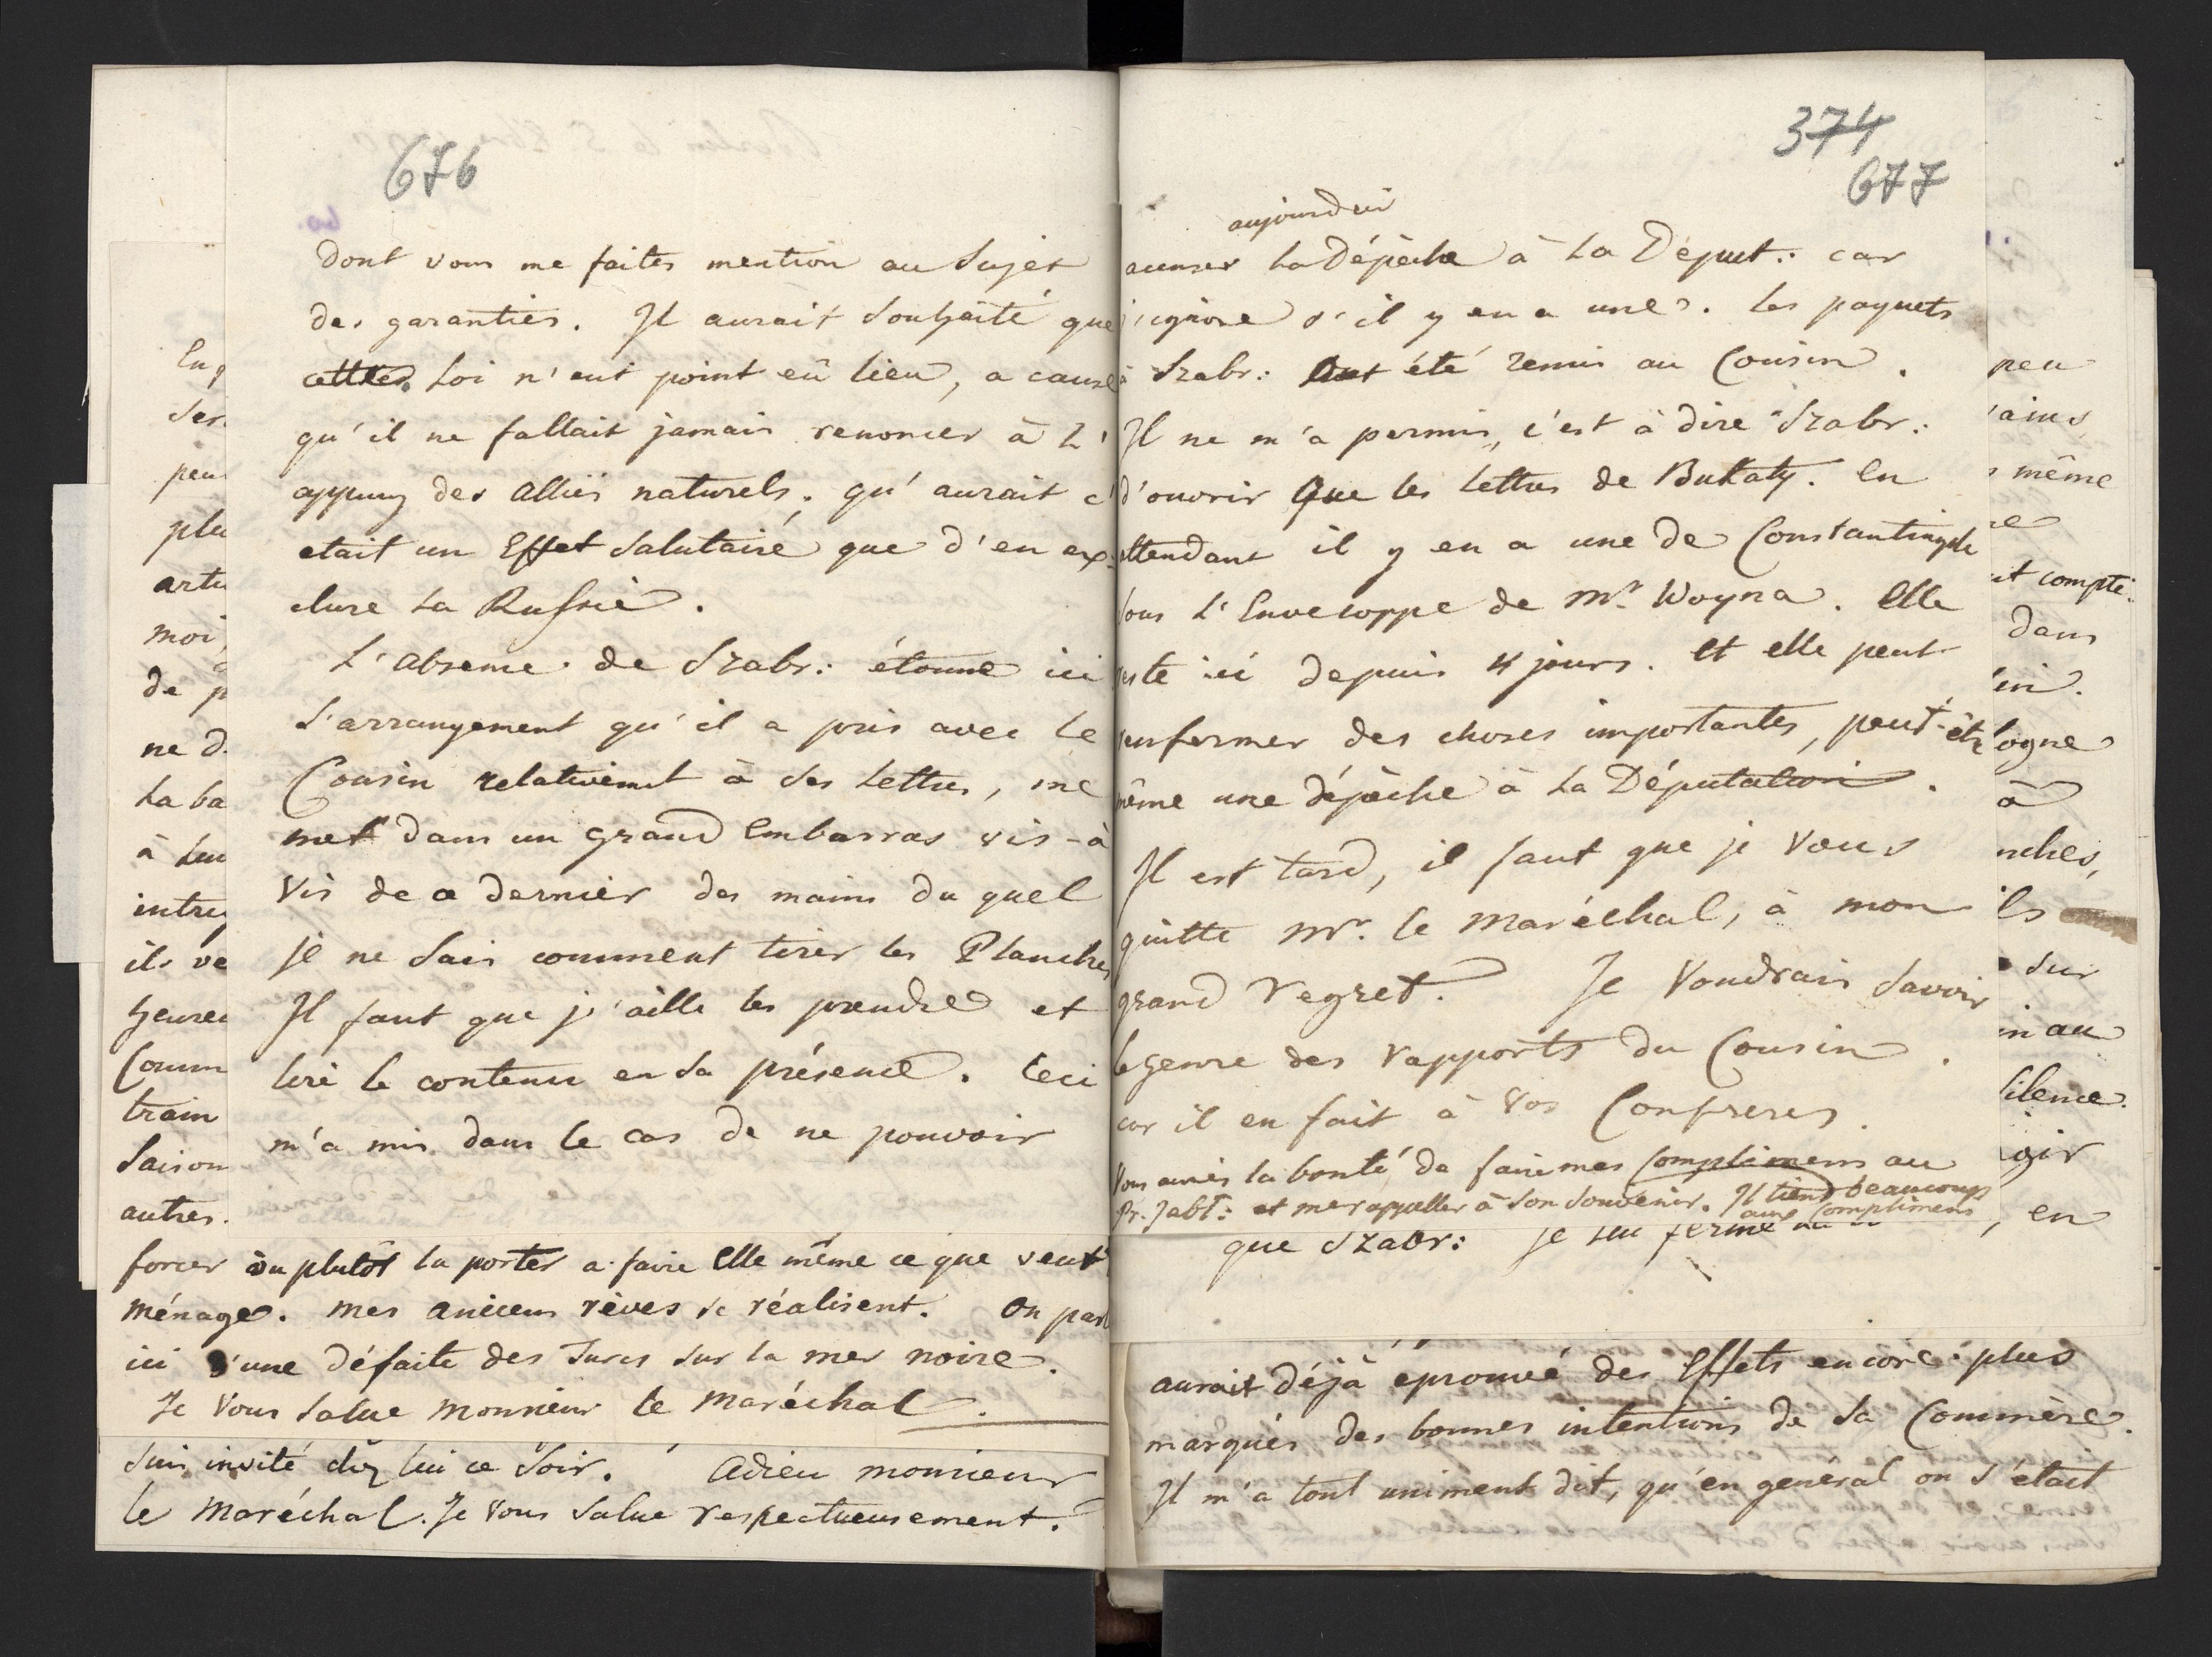 676
dont vous me faites mention au Sujet
des garanties. Il aurait Souhaité que
cette Loi n'eut point eû lieu, a cause
qu'il ne fallait jamais renoncer à L'
appuy des alliés naturels, qu'aurait c'
etait un Effet Salutaire que d'en ex-
clure La Russie.
L'absence de Szabr: étonne ici
L'arrangement qu'il a pris avec le
Cousin relativemt à Ses Lettres, me
met dans un grand Embarras vis-à
vis de ce dernier des mains du quel
je ne Sais comment tirer les Planches
Il faut que j'aille les prendre et
lire le contenu en Sa présence. Ceci
m'a mis dans le cas de ne pouvoir
forcer ou plutôt la porter a faire Elle même ce que veut
ménage. mes anciens rêves se réalisent. On parl
ici d'une défaite des Turcs Sur la mer noire.
Je Vous Salue Monsieur le Maréchal.
Suis invité chez lui ce Soir. Adieu monsieur
le Maréchal. Je Vous Salue respectueusement.
374
677
aujourdui
accuser La Dépêche à La Déput.: car
j'ignore s'il y en a une. Les paquets
à Szabr: Ont été remis au Cousin.
Il ne m'a permis, c'est à dire Szabr:
d'ouvrir Que les Lettres de Bukaty. En
attendant il y en a une de Constantinople
Sous L'Enveloppe de Mr. Woyna. Elle
reste ici depuis 4 jours. et elle peut
renfermer des choses importantes, peut-être
même une dépêche à La Députation.
Il est tard, il faut que je Vous
quitte Mr. le Maréchal, à mon
grand regret. Je Voudrais Savoir
le genre des rapports du Cousin.
car il en fait à Vos Confreres.
Vous aurés la bonté de faire mes Complimens au
Pr. Jabł: et me rappeller à Son Souvenir. Il tient beaucoup
aux Complimens
que Szabr: Je
aurait déjà éprouvé des Effets encore plus
marqués des bonnes intentions de Sa Commère.
Il m'a tout uniment dit, qu'en général on s'était
peu
même
dans
à
Sur
Silence.
en